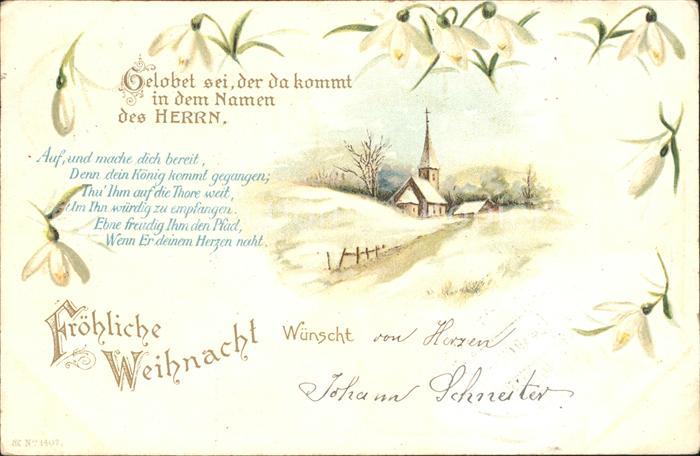 Gelobet sei, der da kommt
in dem Namen
des HERRN.
Auf, und mache dich bereit,
Denn dein König kommt gegangen;
Thu' Ihm auf die Thore weit,
Um Ihn würdig zu empfangen.
Ebne freudig Ihm den Pfad,
Wenn Er deinem Herzen naht.
Fröhliche
Weihnacht
Wünscht von Herzen
Johann Schneiter
No 1407.